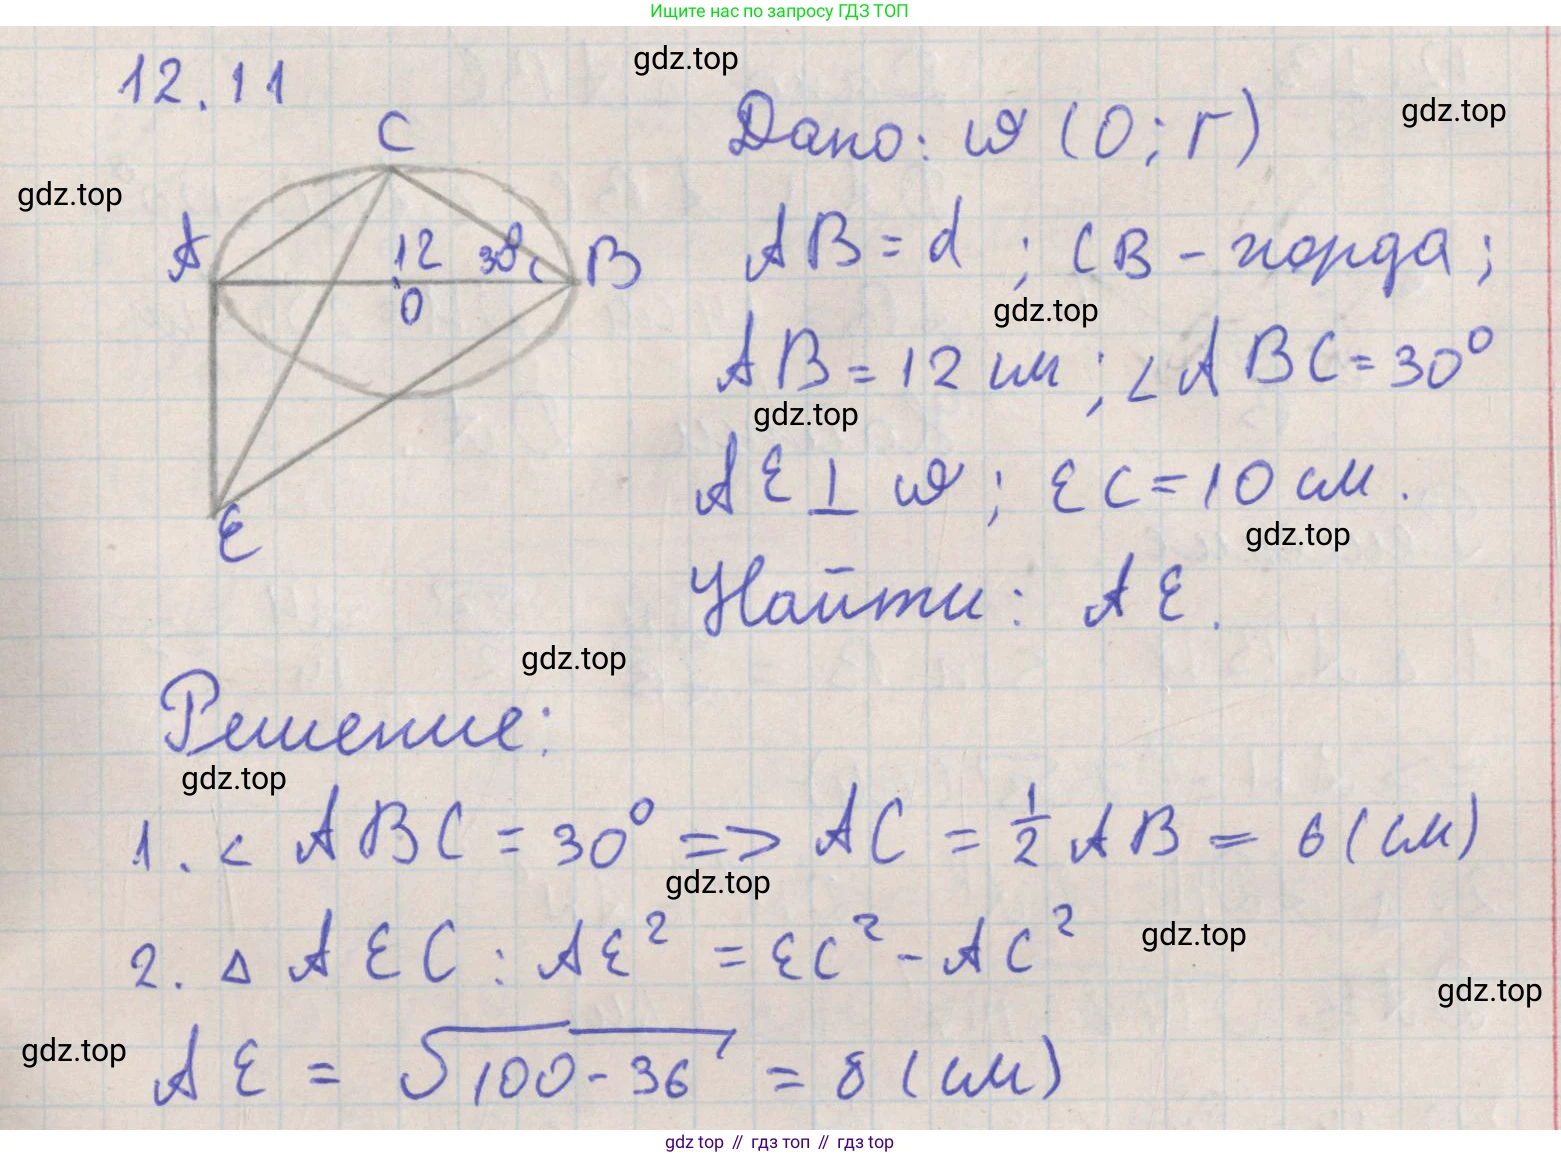 Ищите нас по запросу ГДЗ ТОП
12.11
gdz.top
gdz.top
gdz.top
C
A
12
30°
B
O
E
Дано: ω (O; r)
AB = d ; CB - хорда;
gdz.top
AB = 12 см ; ∠ABC = 30°
gdz.top
AE ⊥ ω ; EC = 10 см.
gdz.top
Найти: AE.
gdz.top
Решение:
gdz.top
1. ∠ ABC = 30° => AC = 1/2 AB = 6 (см)
gdz.top
2. Δ AEC : AE² = EC² - AC²
gdz.top
gdz.top
gdz.top
AE = √100 - 36 = 8 (см)
gdz top // гдз топ // гдз top